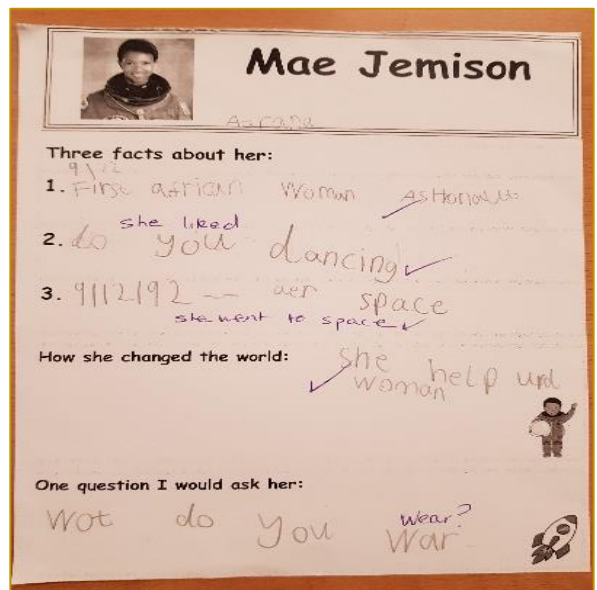 Mae Jemison
Three facts about her:
9\12
1. First african Woman
she liked
2. do you dancing
3. 9/12/92 -- aer space
she went to space
How she changed the world:
she help
woman
One question I would ask her:
wear?
Wot do you war